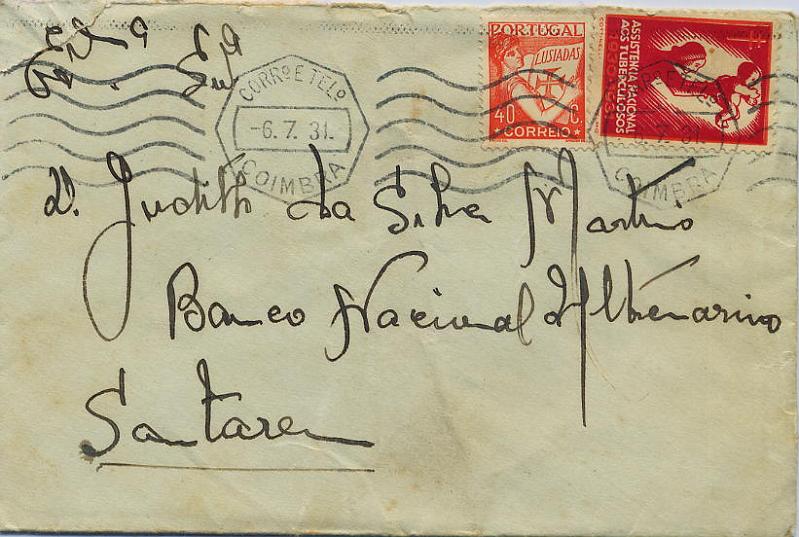 Exma
Snra
CORRO E TELO
-6.7.31.
COIMBRA
PORTUGAL
LUSIADAS
40 C.
CORREIO
ASSISTENCIA NACIONAL
AOS TUBERCULOSOS
CORRO E TELO
7.31
COIMBRA
D. Judith da Silva Martins
Banco Nacional Ultramarino
Santarem